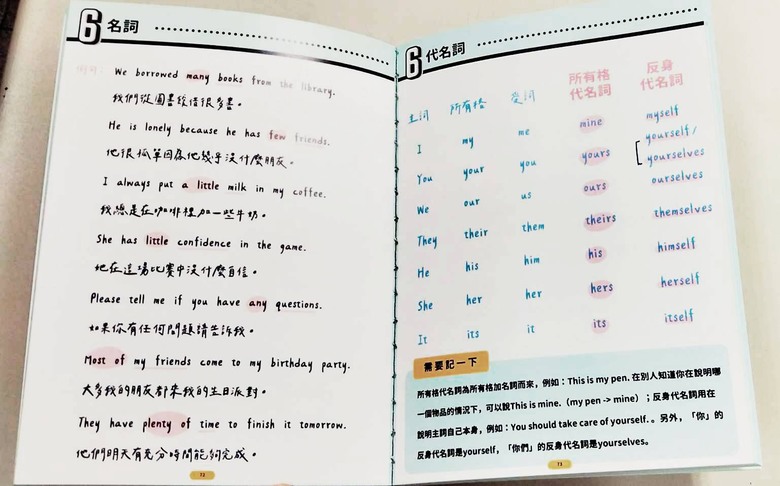 6 名詞
例句
We borrowed many books from the library.
我們從圖書館借很多書。
He is lonely because he has few friends.
他很孤單因為他幾乎沒什麼朋友。
I always put a little milk in my coffee.
我總是在咖啡裡加一些牛奶。
She has little confidence in the game.
她在這場比賽中沒什麼自信。
Please tell me if you have any questions.
如果你有任何問題請告訴我。
Most of my friends come to my birthday party.
大多我的朋友都來我的生日派對。
They have plenty of time to finish it tomorrow.
他們明天有充分時間能夠完成。
72
6 代名詞
主詞 所有格 受詞 所有格代名詞 反身代名詞
I my me mine myself
You your you yours yourself / yourselves
We our us ours ourselves
They their them theirs themselves
He his him his himself
She her her hers herself
It its it its itself
需要記一下
所有格代名詞為所有格加名詞而來，例如：This is my pen. 在別人知道你在說明哪
一個物品的情況下，可以說This is mine.（my pen -> mine）；反身代名詞用在
說明主詞自己本身，例如：You should take care of yourself.。另外，「你」的
反身代名詞是yourself，「你們」的反身代名詞是yourselves。
73